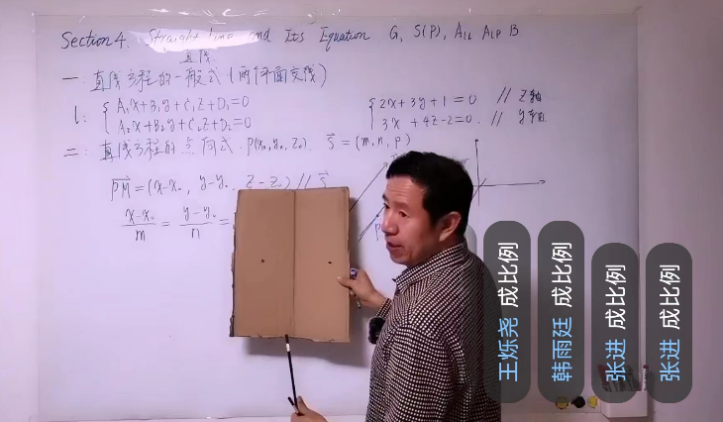 Section 4. Straight Line and Its Equation G, S(P),
直线
一: 直线方程的一般式 (两个平面交线)
l: { A₁x+B₁y+C₁z+D₁=0
A₂x+B₂y+C₂z+D₂=0
{ 2x+3y+1=0 // z轴
3x +4z-2=0. // y轴
二: 直线方程的点向式. P(x₀,y₀,z₀) s⃗ = (m,n,p)
PM⃗=(x-x₀, y-y₀, z-z₀) // s⃗
(x-x₀)/m = (y-y₀)/n =
王烁尧 成比例
韩雨廷 成比例
张进 成比例
张进 成比例